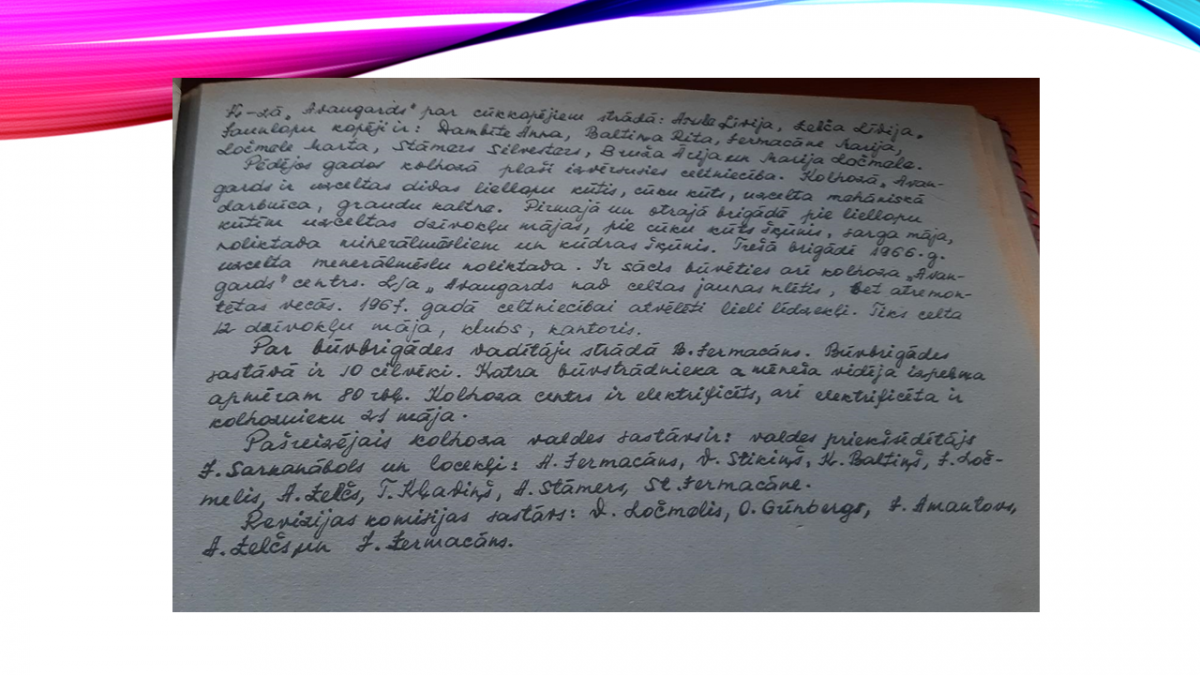 K-zā „Avangards" par cūkkopējiem strādā: Azute Līvija, Zelča Līvija.
Jaunlopu kopēji ir: Dambīte Anna, Baltiņa Rita, Germacāne Marija,
Ločmele Marta, Stāmers Silvesters, Bruža Ārija un Marija Ločmele.
Pēdējos gados kolhozā plaši izvērsusies celtniecība. Kolhozā „Avan-
gards ir uzceltas divas liellopu kūtis, cūku kūts, uzcelta mehāniskā
darbnīca, graudu kaltne. Pirmajā un otrajā brigādē pie liellopu
kūtīm uzceltas dzīvokļu mājas, pie cūku kūts šķūnis, sarga māja,
noliktava minerālmēsliem un kūdras šķūnis. Trešā brigādē 1966. g.
uzcelta menerālmēslu noliktava. Ir sācis būvēties arī kolhoza „Avan-
gards" centrs. L/a „Avangards nav celtas jaunas klētis, bet atremon-
tētas vecās. 1967. gadā celtniecībai atvēlēti lieli līdzekļi. Tiks celta
12 dzīvokļu māja, klubs, kantoris.
Par būvbrigādes vadītāju strādā B. Germacāns. Būvbrigādes
sastāvā ir 10 cilvēki. Katra būvstrādnieka mēneša vidēja izpeļņa
apmēram 80 rbļ. Kolhoza centrs ir elektrificēts, arī elektrificēta ir
kolhoznieku 21 māja.
Pašreizējais kolhoza valdes sastāvs ir: valdes priekšsēdētājs
J. Sarkanābols un locekļi: A. Germacāns, V. Stikiņš, K. Baltiņš, J. Loč-
melis, A. Zelčs, T. Kļaviņš, A. Stāmers, St. Germacāne.
Revīzijas komisijas sastāvs: V. Ločmelis, O. Gūnbergs, J. Amantovs,
A. Zelčs un J. Germacāns.